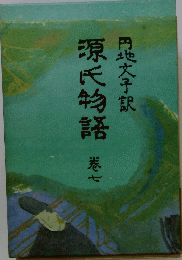 円地文子訳
源氏物語
巻七